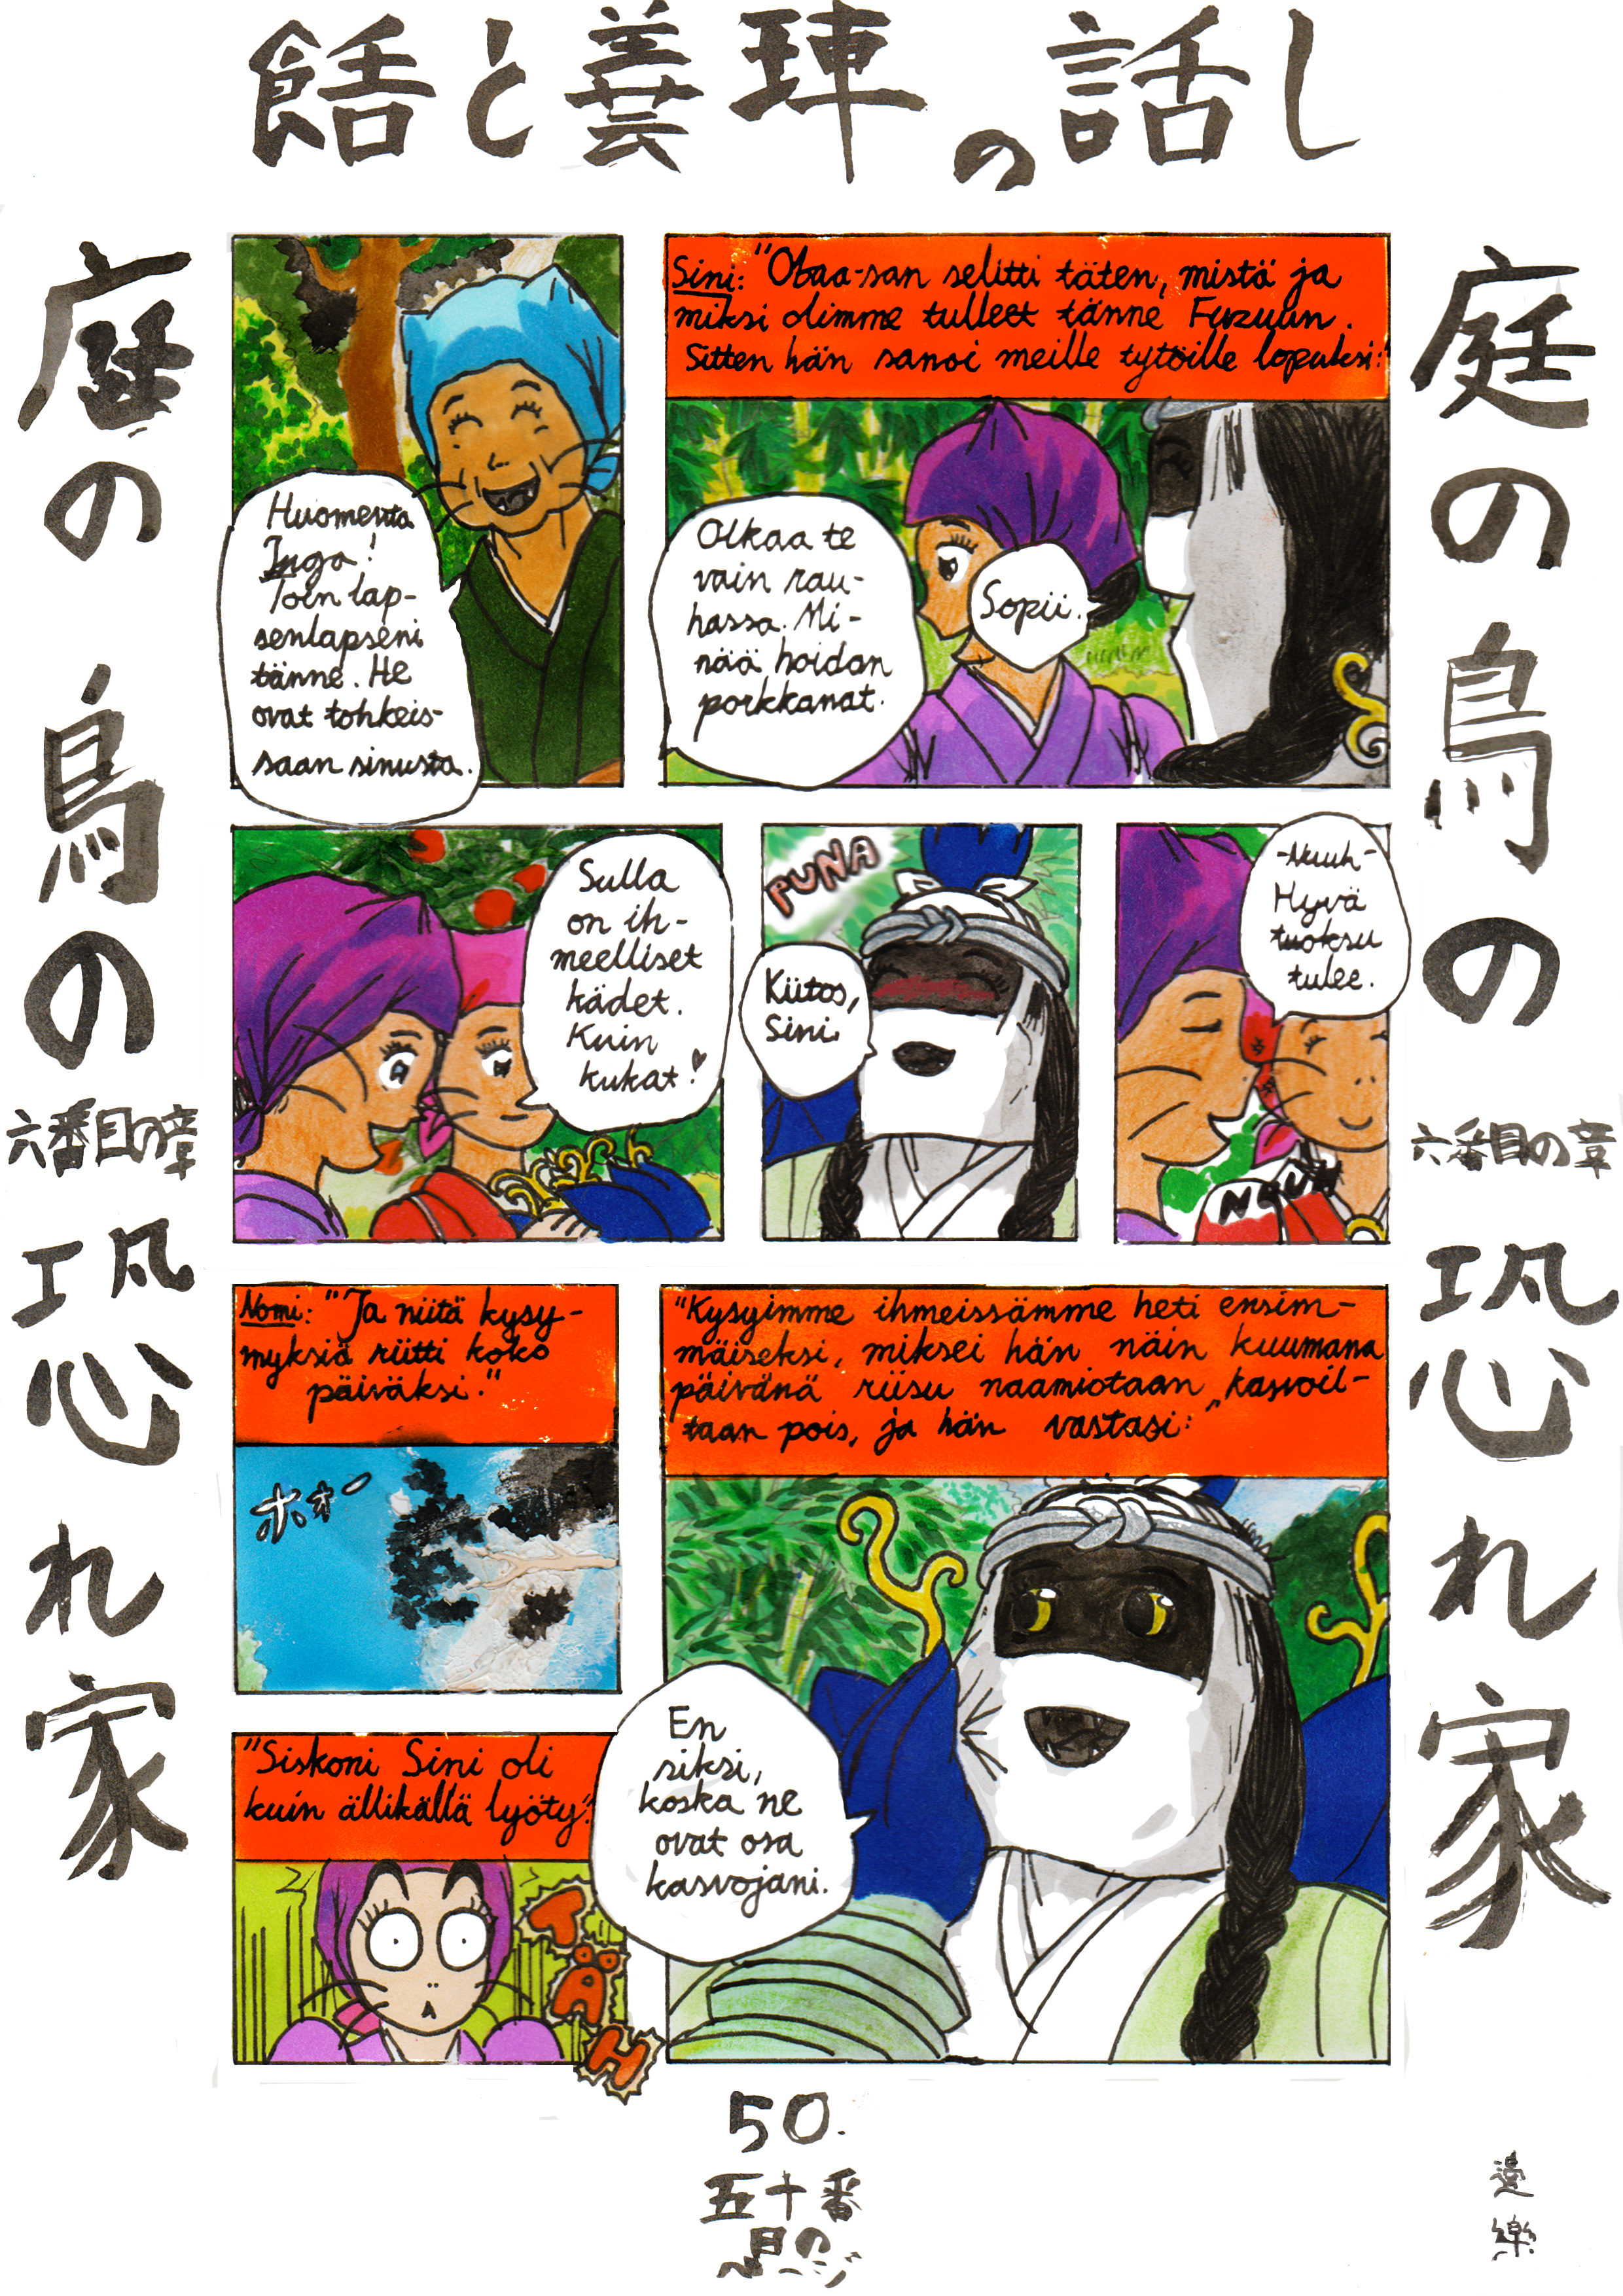 と
の話し
庭の鳥の恐れ家
六番目の章
Huomenta
Inga!
Toin lap-
senlapseni
tänne. He
ovat tohkeis-
saan sinusta.
Sini: "Obaa-san selitti täten, mistä ja
miksi olimme tulleet tänne Fuzuun.
Sitten hän sanoi meille tytöille lopuksi:"
Olkaa te
vain rau-
hassa. Mi-
nää hoidan
porkkanat.
Sopii.
Sulla
on ih-
meelliset
kädet.
Kuin
kukat!
PUNA
Kiitos,
Sini.
-Nuuh-
Hyvä
tuoksu
tulee.
NUUH
Nomi: "Ja niitä kysy-
myksiä riitti koko
päiväksi."
ホォー
"Kysyimme ihmeissämme heti ensim-
mäiseksi, miksei hän näin kuumana
päivänä riisu naamiotaan kasvoil-
taan pois, ja hän vastasi:"
En
siksi,
koska ne
ovat osa
kasvojani.
"Siskoni Sini oli
kuin ällikällä lyöty."
TÄH
庭の鳥の恐れ家
六番目の章
50.
五十番
目の